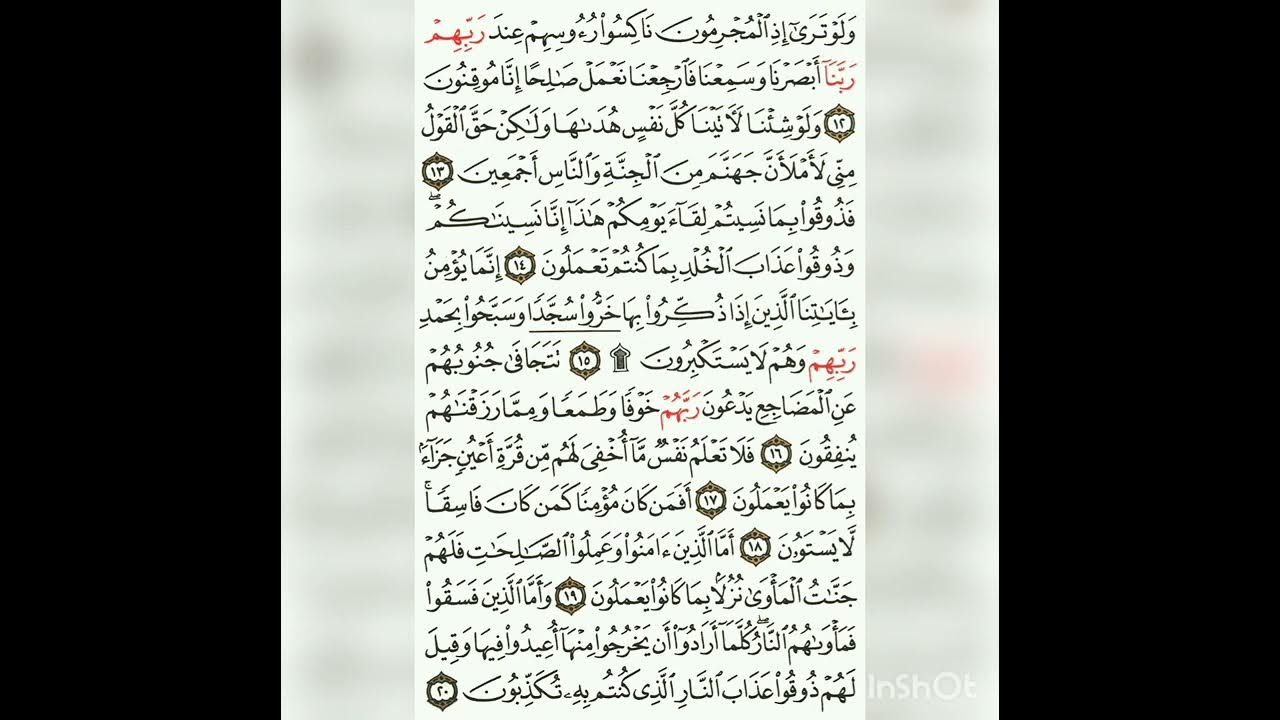 وَلَوْ تَرَىٰٓ إِذِ ٱلْمُجْرِمُونَ نَاكِسُوا۟ رُءُوسِهِمْ عِندَ رَبِّهِمْ
رَبَّنَآ أَبْصَرْنَا وَسَمِعْنَا فَٱرْجِعْنَا نَعْمَلْ صَـٰلِحًا إِنَّا مُوقِنُونَ
١٢ وَلَوْ شِئْنَا لَـَٔاتَيْنَا كُلَّ نَفْسٍ هُدَىٰهَا وَلَـٰكِنْ حَقَّ ٱلْقَوْلُ
مِنِّى لَأَمْلَأَنَّ جَهَنَّمَ مِنَ ٱلْجِنَّةِ وَٱلنَّاسِ أَجْمَعِينَ ١٣
فَذُوقُوا۟ بِمَا نَسِيتُمْ لِقَآءَ يَوْمِكُمْ هَـٰذَآ إِنَّا نَسِينَـٰكُمْ ۖ
وَذُوقُوا۟ عَذَابَ ٱلْخُلْدِ بِمَا كُنتُمْ تَعْمَلُونَ ١٤ إِنَّمَا يُؤْمِنُ
بِـَٔايَـٰتِنَا ٱلَّذِينَ إِذَا ذُكِّرُوا۟ بِهَا خَرُّوا۟ سُجَّدًا وَسَبَّحُوا۟ بِحَمْدِ
رَبِّهِمْ وَهُمْ لَا يَسْتَكْبِرُونَ ۩ ١٥ تَتَجَافَىٰ جُنُوبُهُمْ
عَنِ ٱلْمَضَاجِعِ يَدْعُونَ رَبَّهُمْ خَوْفًا وَطَمَعًا وَمِمَّا رَزَقْنَـٰهُمْ
يُنفِقُونَ ١٦ فَلَا تَعْلَمُ نَفْسٌ مَّآ أُخْفِىَ لَهُم مِّن قُرَّةِ أَعْيُنٍ جَزَآءًۢ
بِمَا كَانُوا۟ يَعْمَلُونَ ١٧ أَفَمَن كَانَ مُؤْمِنًا كَمَن كَانَ فَاسِقًا ۚ
لَّا يَسْتَوُۥنَ ١٨ أَمَّا ٱلَّذِينَ ءَامَنُوا۟ وَعَمِلُوا۟ ٱلصَّـٰلِحَـٰتِ فَلَهُمْ
جَنَّـٰتُ ٱلْمَأْوَىٰ نُزُلًۢا بِمَا كَانُوا۟ يَعْمَلُونَ ١٩ وَأَمَّا ٱلَّذِينَ فَسَقُوا۟
فَمَأْوَىٰهُمُ ٱلنَّارُ ۖ كُلَّمَآ أَرَادُوٓا۟ أَن يَخْرُجُوا۟ مِنْهَآ أُعِيدُوا۟ فِيهَا وَقِيلَ
لَهُمْ ذُوقُوا۟ عَذَابَ ٱلنَّارِ ٱلَّذِى كُنتُم بِهِۦ تُكَذِّبُونَ ٢٠
InShOt